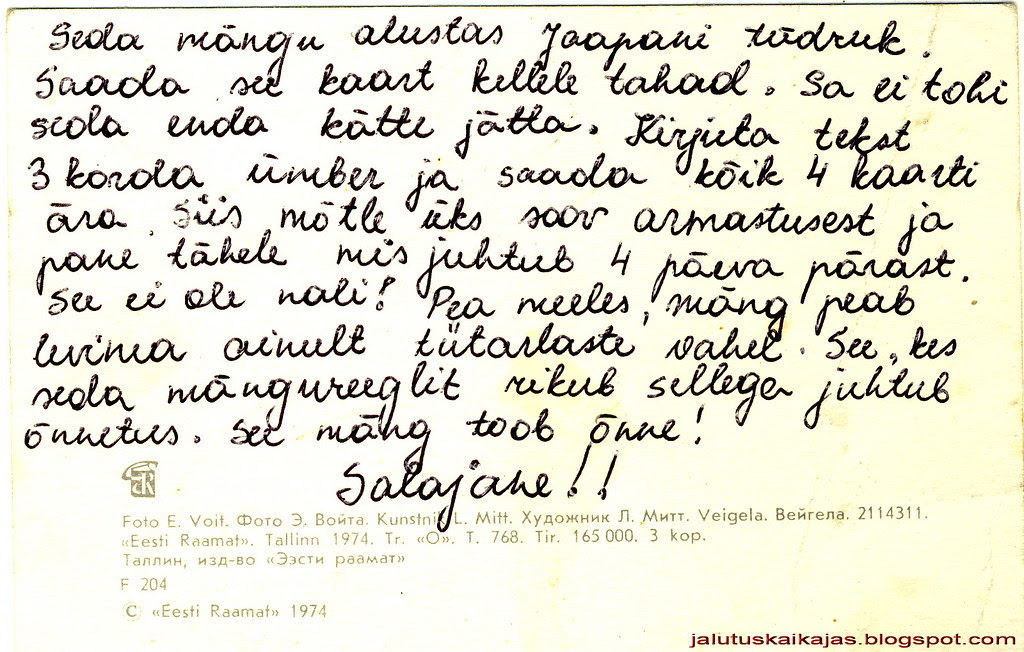 Seda mängu alustas Jaapani tüdruk.
Saada see kaart kellele tahad. Sa ei tohi
seda enda kätte jätta. Kirjuta tekst
3 korda ümber ja saada kõik 4 kaarti
ära. Siis mõtle üks soov armastusest ja
pane tähele mis juhtub 4 päeva pärast.
See ei ole nali! Pea meeles, mäng peab
levima ainult tütarlaste vahel. See, kes
seda mängureeglit rikub sellega juhtub
õnnetus. See mäng toob õnne!
Salajane!!
Foto E. Voit. Фото Э. Войта. Kunstnik L. Mitt. Художник Л. Митт. Veigela. Вейгела. 2114311.
«Eesti Raamat». Tallinn 1974. Tr. «O». T. 768. Tir. 165 000. 3 kop.
Таллин, изд-во «Ээсти раамат»
F 204
© «Eesti Raamat» 1974
jalutuskaikajas.blogspot.com